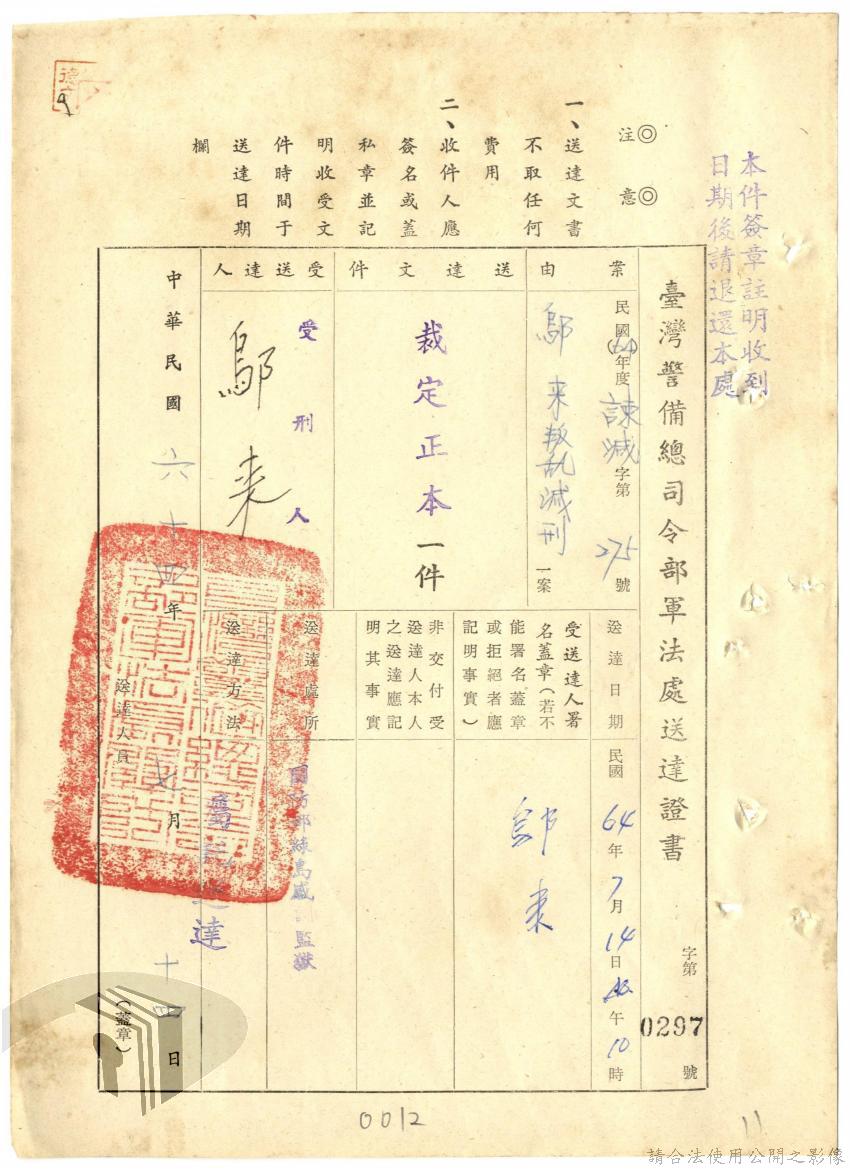 本件簽章註明收到
日期後請退還本處
◎注意◎
一、送達文書
不取任何
費用
二、收件人應
簽名或蓋
私章並記
明收受文
件時間于
送達日期
欄
臺灣警備總司令部軍法處送達證書
字第0297號
案由
民國(64)年度諫減字第275號
鄔来叛乱減刑一案
送達文件
裁定正本一件
受送達人
受刑人
鄔来
送達日期
民國64年7月14日午10時
受送達人署
名蓋章(若不
能署名蓋章
或拒絕者應
記明事實)
鄔来
非交付受
送達人本人
之送達應記
明其事實
送達處所
國防部綠島感訓監獄
送達方法
達
中華民國六十四年七月十四日
送達人員
(蓋章)
0012
11
請合法使用公開之影像